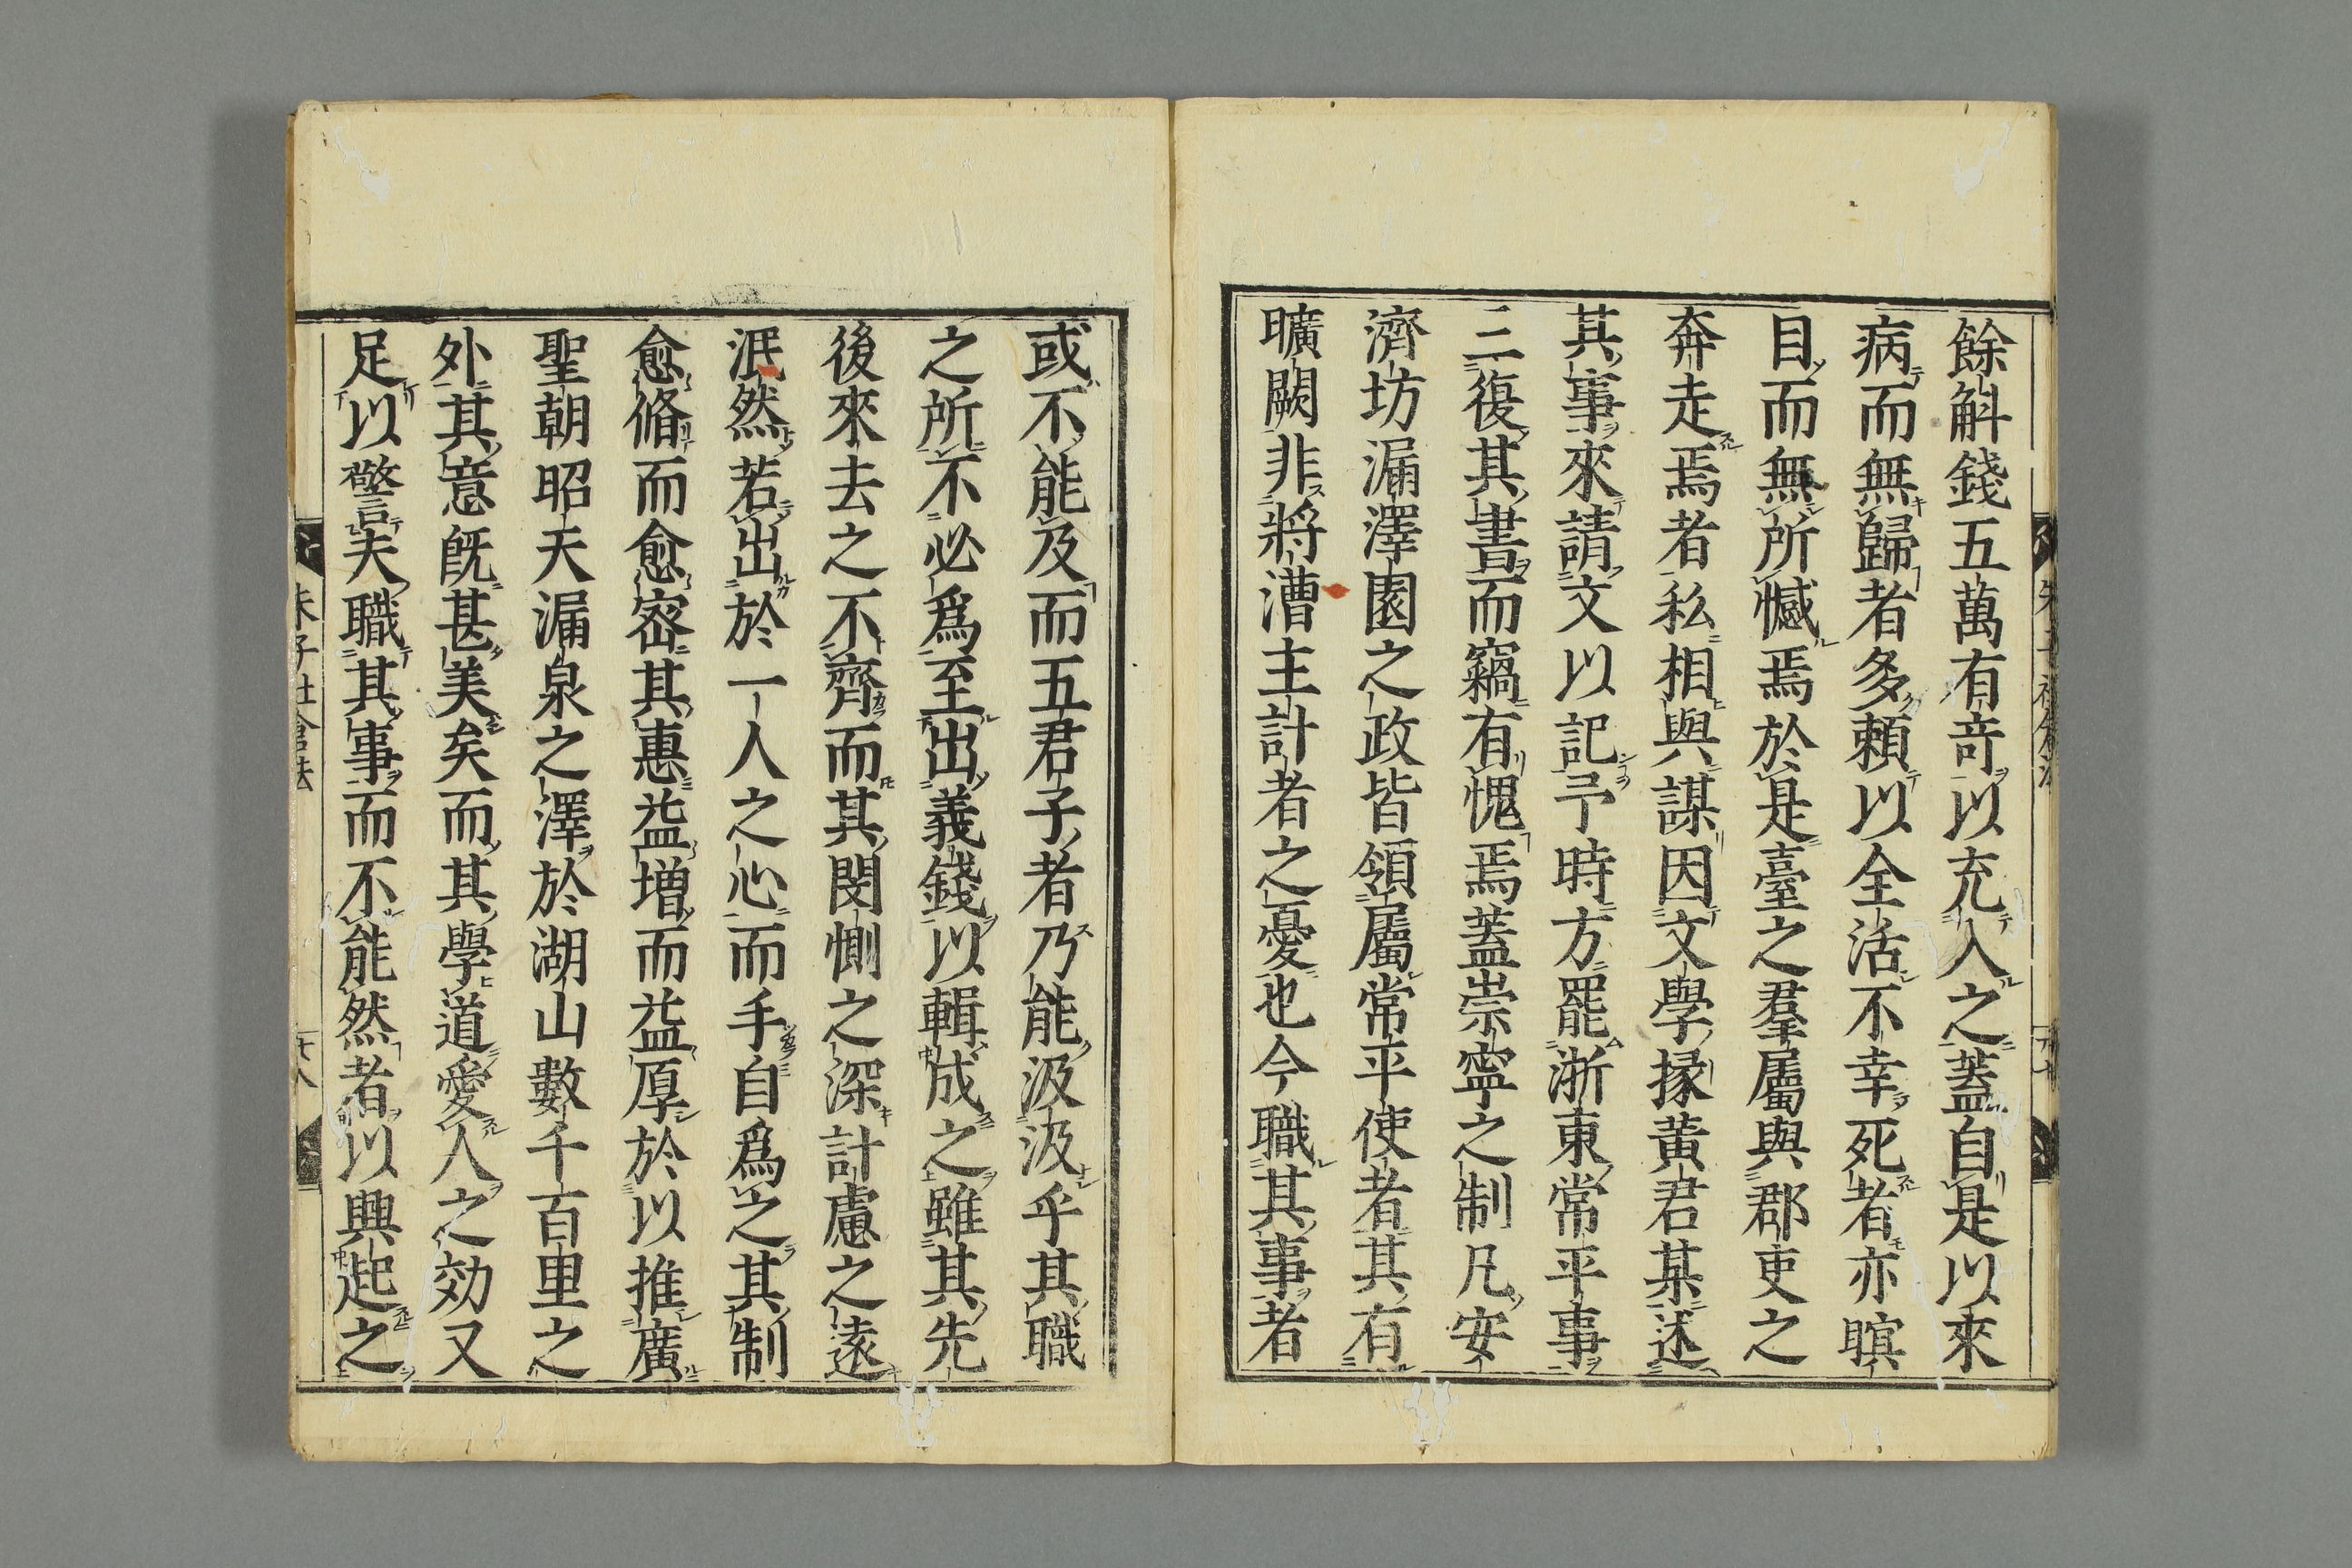 餘斛錢五萬有奇以充入之蓋自是以來
病而無歸者多頼以全活不幸死者亦瞑
目而無所憾焉於是臺之羣屬與郡吏之
奔走焉者私相與謀因文學掾黄君某述
其事來請文以記予時方罷浙東常平事
三復其書而竊有愧焉蓋崇寧之制凡安
濟坊漏澤園之政皆領屬常平使者其有
曠闕非將漕主計者之憂也今職其事者
或不能及而五君子者乃能汲汲乎其職
之所不必爲至出義錢以輯成之雖其先
後來去之不齊而其閔惻之深計慮之遠
泯然若出於一人之心而手自爲之其制
愈脩而愈宻其惠益増而益厚於以推廣
聖朝昭天漏泉之澤於湖山數千百里之
外其意旣甚美矣而其學道愛人之効又
足以警夫職其事而不能然者以興起之
朱子社倉法